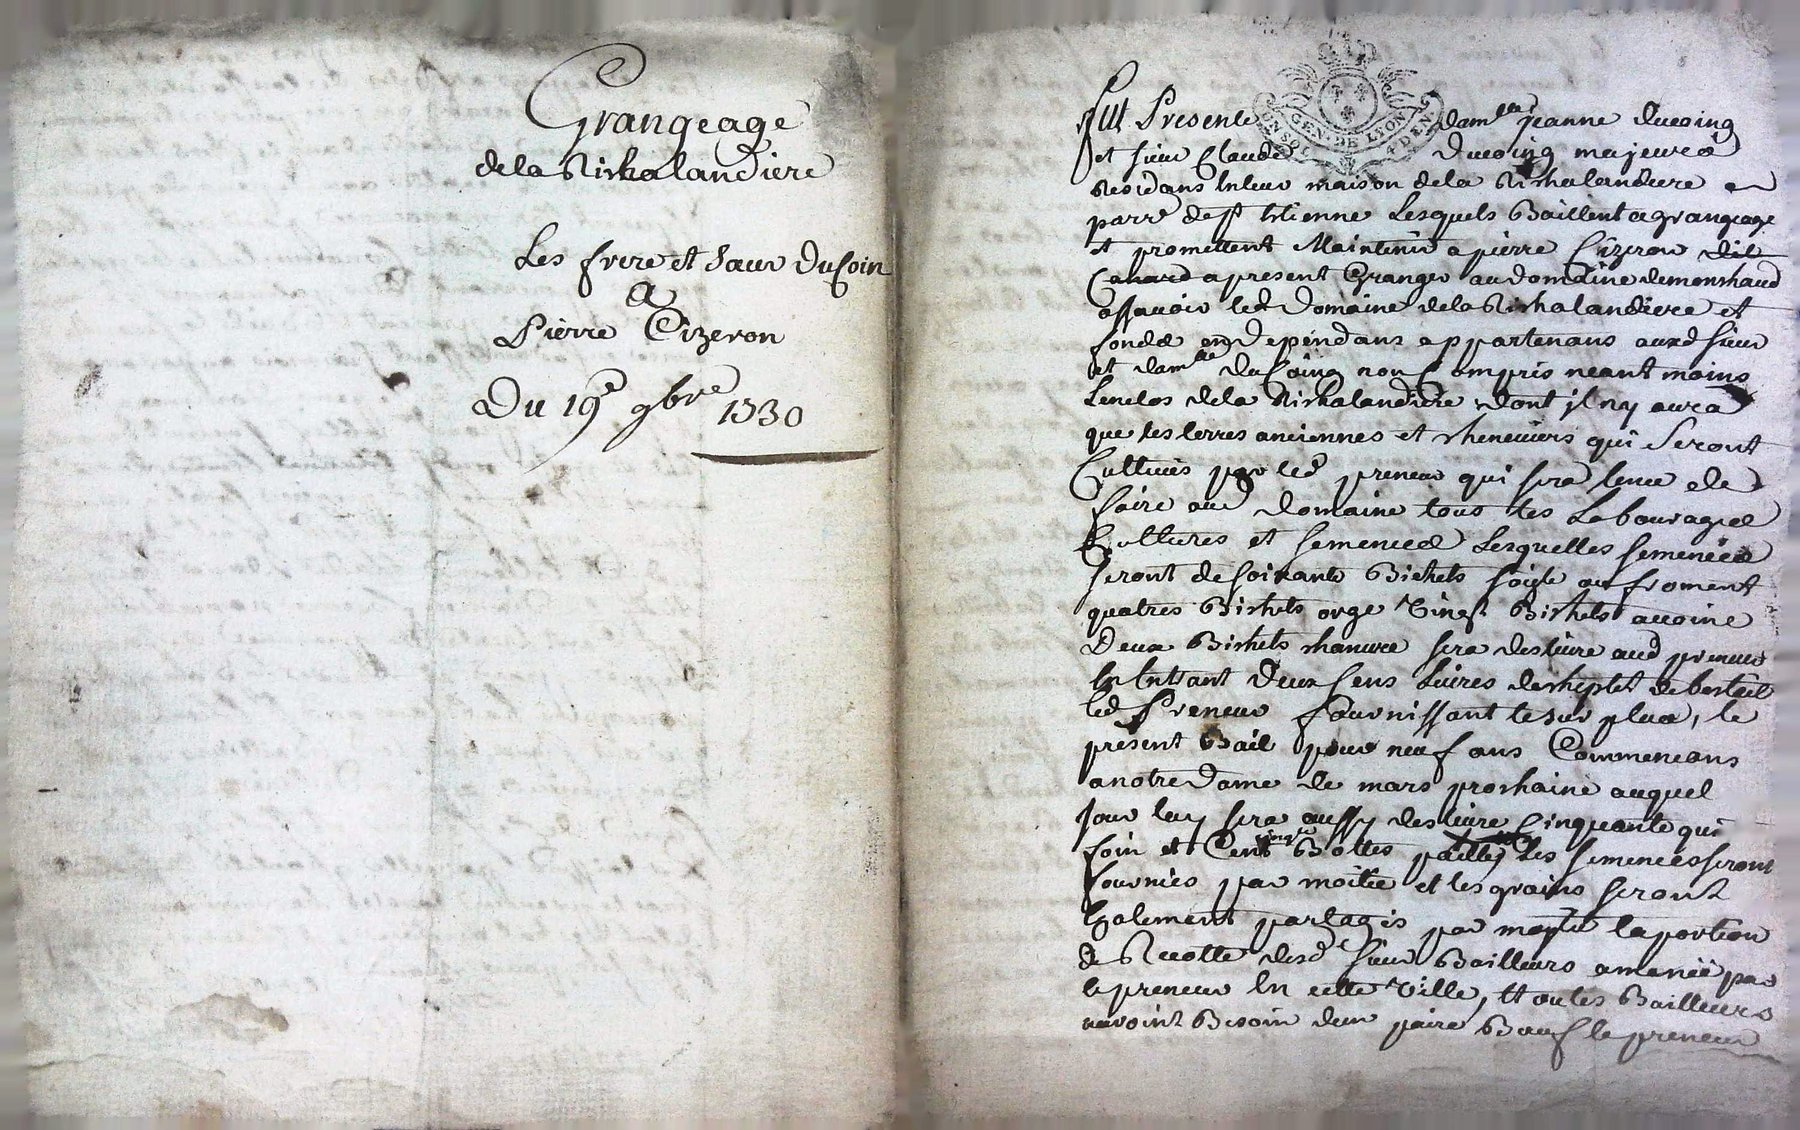 Grangeage
dela Richalandiere
Les frere et Sœur DuCoin
a
Pierre Cizeron
Du 19e 9bre 1730
GEN DE LYON
fut Presente damlle jeanne Ducoing
et sieur Claude Ducoing majeurs
Residans en leur maison dela Richalandiere en
parre de st Etienne Lesquels Baillent a grangeage
et promettent Maintenir a pierre Cizeron dit
Canard a present Granger au domaine demonchaud
assavoir led Domaine dela Richalandiere et
fonds en Dependans appartenans auxd sieur
et damlle duCoing non Compris neantmoins
Lenclos dela Richalandiere dont il ny aura
que les terres anciennes et cheneviers qui Seront
Cultivés par led preneur qui sera tenu de
faire aud Domaine tous les Labourages
Cultures et semences Lesquelles semences
seront de soixante Bichets soigle ou froment
quatres Bichets orge Vingt Bichets avoine
Deux Bichets chanvre sera deslivre aud preneur
En Entrant Deux Cens Livres de cheptel de besteil
led Preneur fournissant le sur plus, le
present Bail pour neuf ans Commencans
a notre Dame de mars prochaine auquel
Jour luy sera aussy deslivre Cinquante qui
foin et Cent vingt Bottes paille, Les semences seront
fournies par moitie et les grains seront
Egalement partagés par moytié la portion
de Recolte desd sieur Bailleurs amenée par
le preneur En cette Ville, et ou les Bailleurs
auroint Besoin dun paire Bœuf le preneur